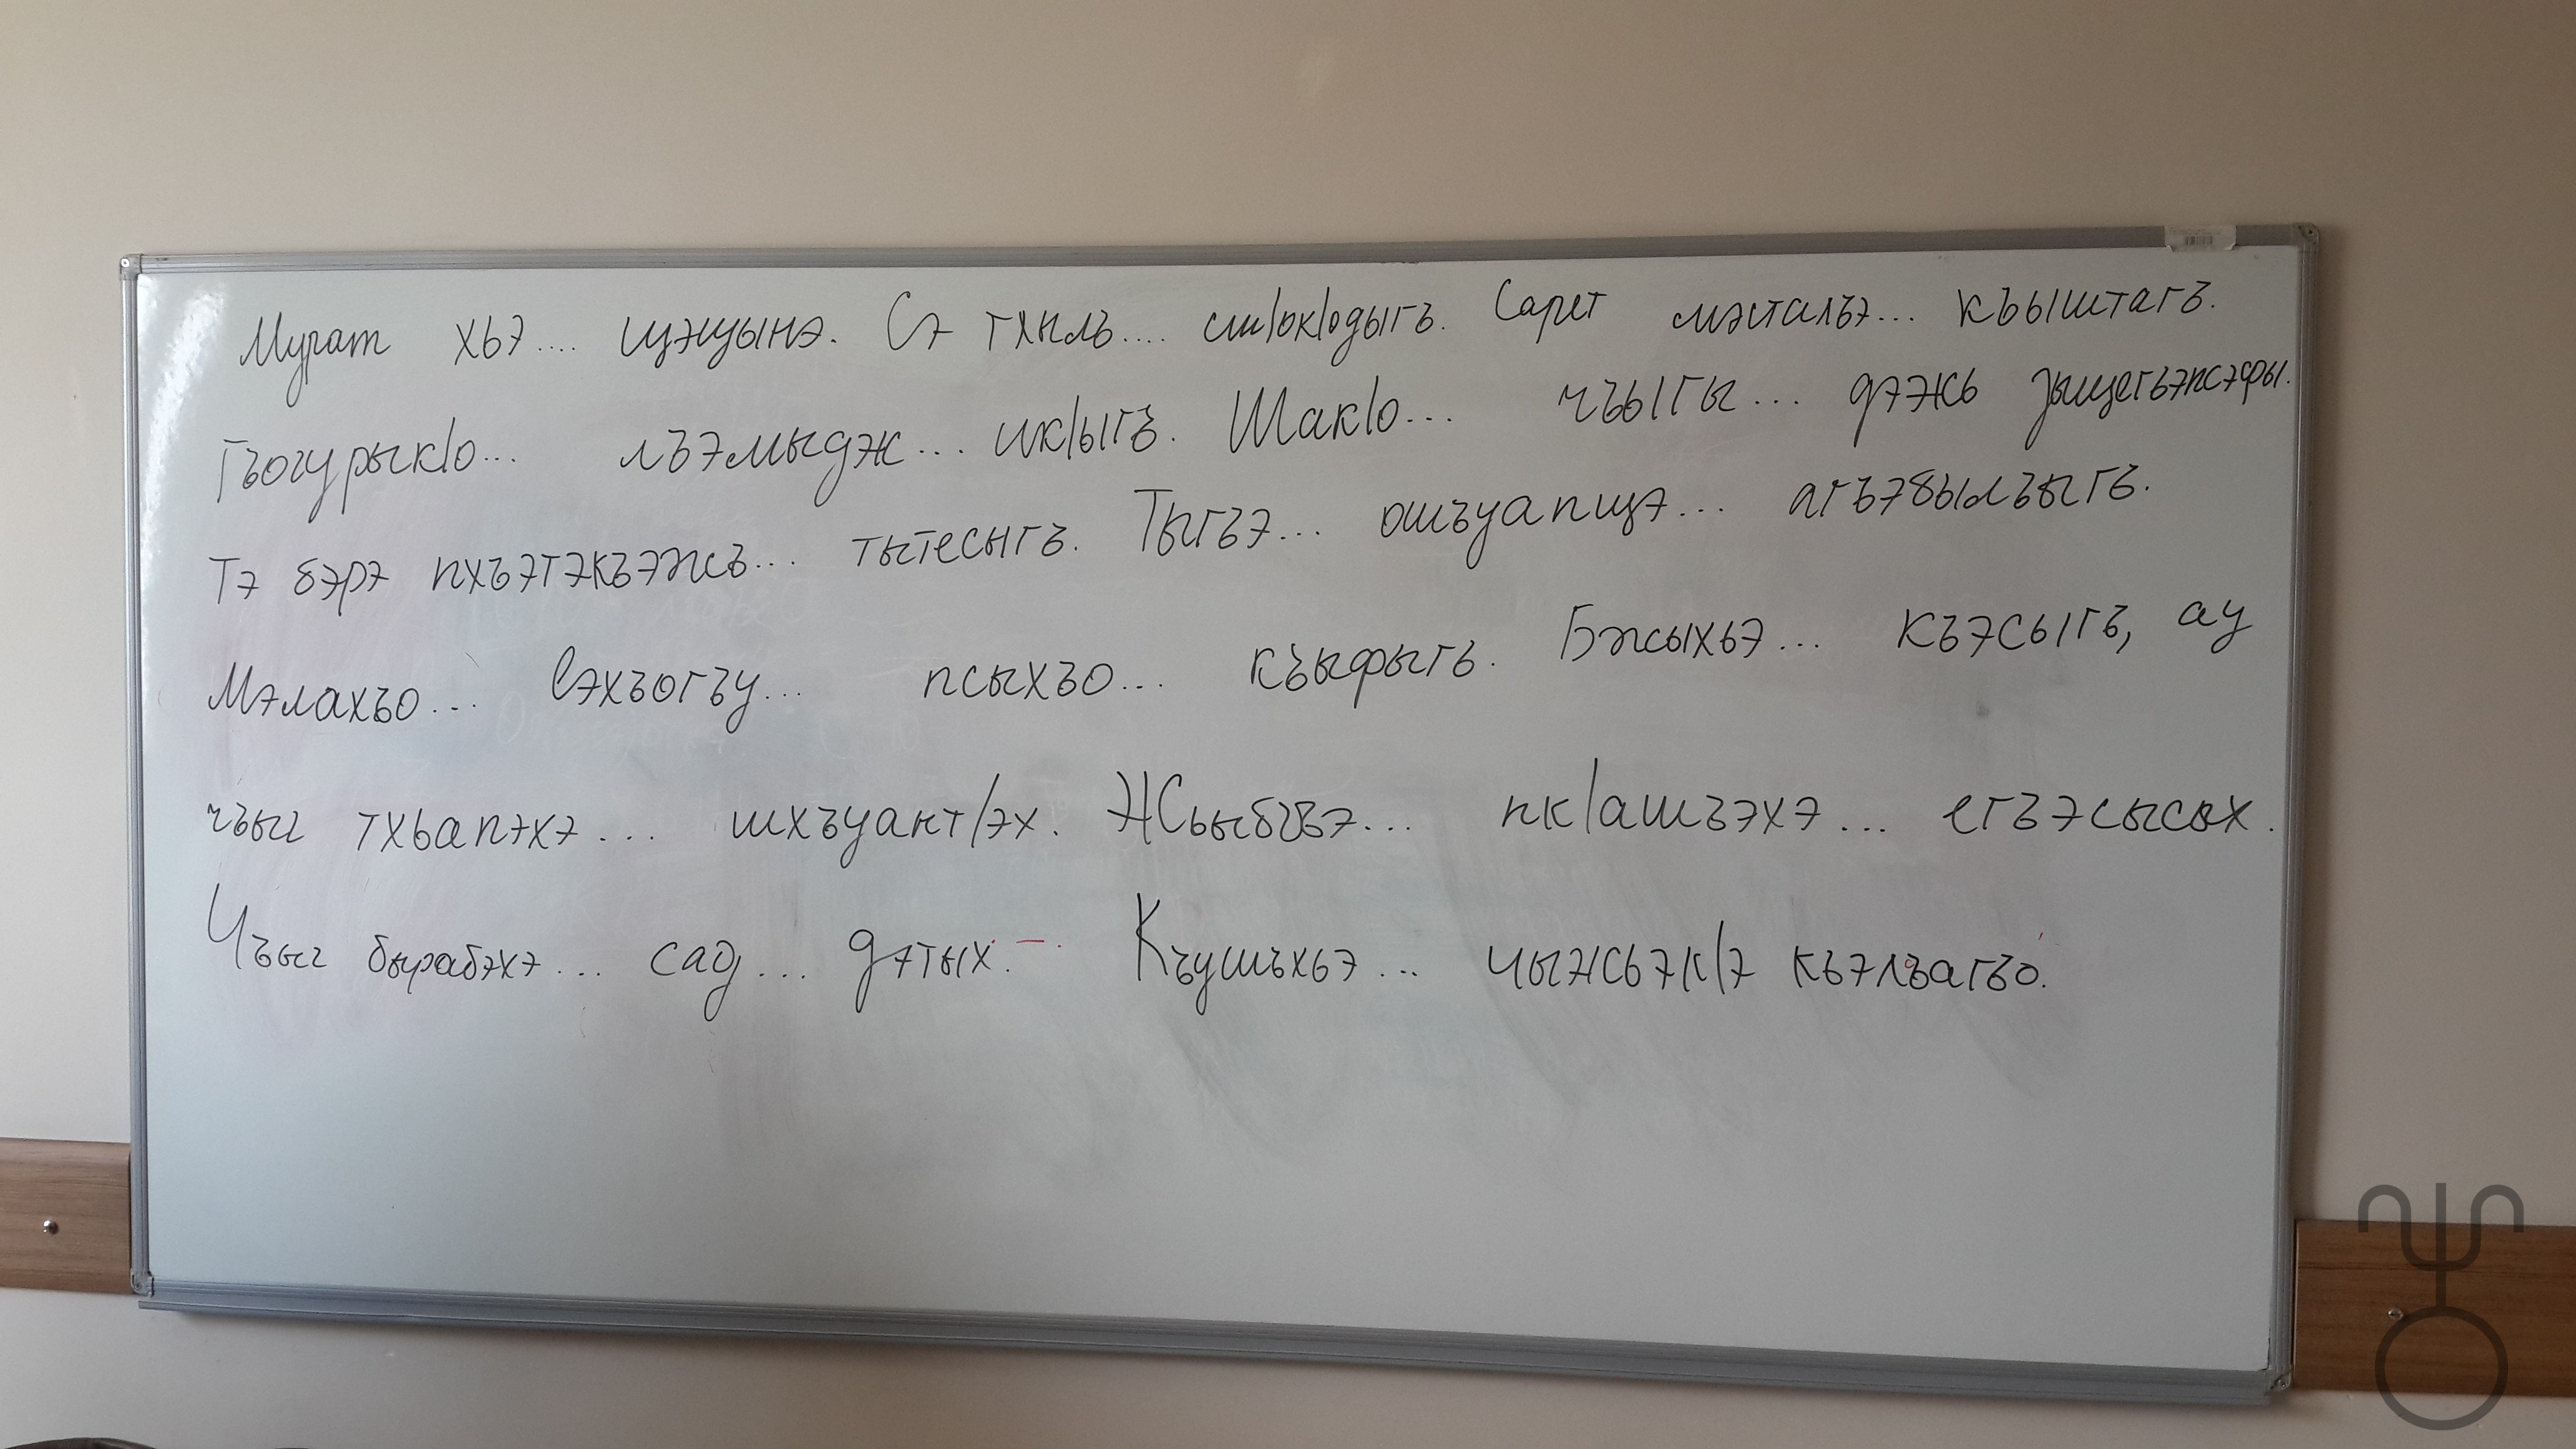 Мурат хьэ.... щэщынэ. Сэ тхылъ.... сшӏокӏодыгъ. Сарет мэстальэ... къыштагъ.
Гъогурыкӏо... лъэмыдж... икӏыгъ. Шакӏо... чъыгы... дэжь зыщегъэпсэфы.
Тэ бэрэ пхъэтэкъэжъ... тытесыгъ. Тыгъэ... ошъуапщэ... агъэбылъыгъ.
Мэлахъо... Іэхъогъу... псыхъо... къыфыгъ. Бжыхьэ... къэсыгъ, ау
чъыг тхьапэхэ... шхъуантӏэх. Жьыбгъэ... пкӏашъэхэ... егъэсысых.
Чъыг бырабэхэ... сад... дэтых. Къушъхьэ... чыжьэкӏэ къэлъагъо.